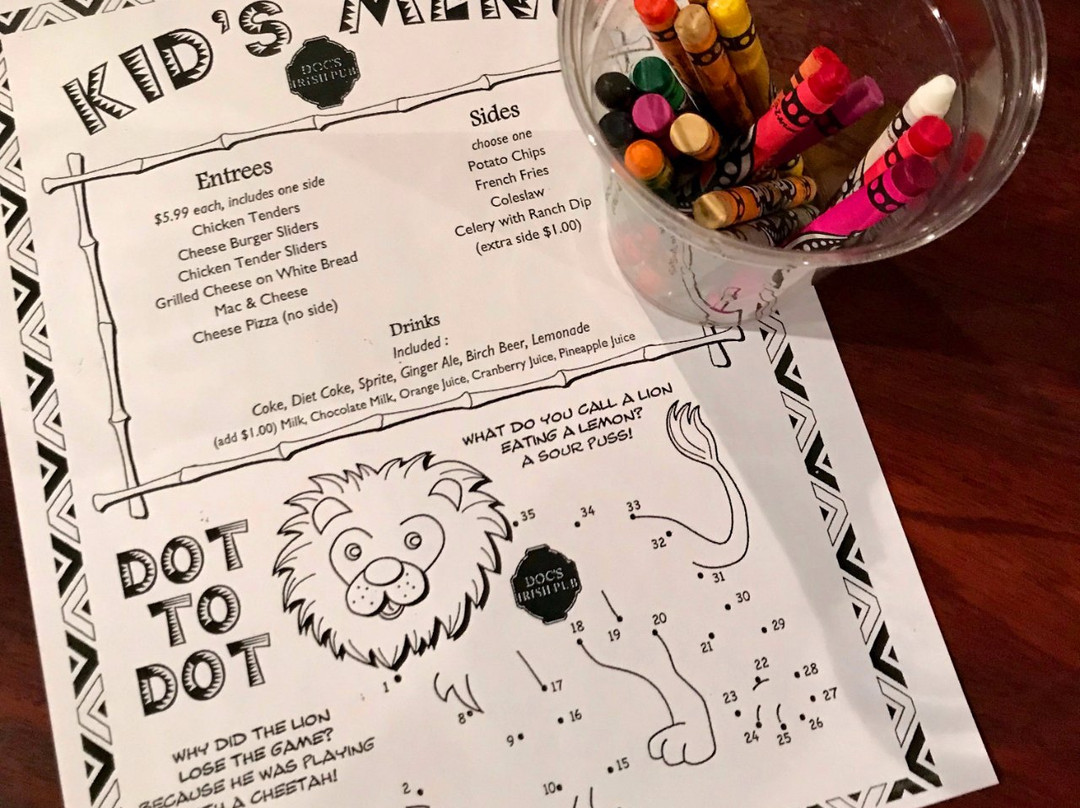 KID'S MENU
DOC'S
IRISH PUB
Entrees
$5.99 each, includes one side
Chicken Tenders
Cheese Burger Sliders
Chicken Tender Sliders
Grilled Cheese on White Bread
Mac & Cheese
Cheese Pizza (no side)
Sides
choose one
Potato Chips
French Fries
Coleslaw
Celery with Ranch Dip
(extra side $1.00)
Drinks
Included :
Coke, Diet Coke, Sprite, Ginger Ale, Birch Beer, Lemonade
(add $1.00) Milk, Chocolate Milk, Orange Juice, Cranberry Juice, Pineapple Juice
WHAT DO YOU CALL A LION
EATING A LEMON?
A SOUR PUSS!
DOT
TO
DOT
35
34
33
32
31
DOC'S
IRISH PUB
30
29
18
19
20
21
22
28
1
17
23
27
8
16
24
25
26
9
15
2
10
WHY DID THE LION
LOSE THE GAME?
BECAUSE HE WAS PLAYING
A CHEETAH!